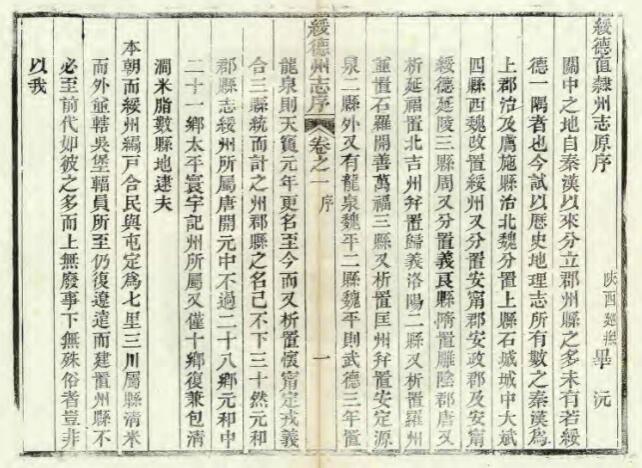 綏德直隸州志原序
陝西廵撫畢沅
關中之地自秦漢以來分立郡州縣之多未有若綏
德一隅者也今試以歷史地理志所有數之秦漢爲
上郡治及膚施縣治北魏分置上縣石城城中大斌
四縣西魏改置綏州又分置安甯郡安政郡及安甯
綏德延陵三縣周又分置義良縣隋置雕陰郡唐又
析延福置北吉州幷置歸義洛陽二縣又析置羅州
重置石羅開善萬福三縣又析置匡州幷置安定源
泉二縣外又有龍泉魏平二縣魏平則武德三年置
綏德州志序
卷之一
序
一
龍泉則天寶元年更名至今而又析置懷甯定戎義
合三縣統而計之州郡縣之名已不下三十然元和
郡縣志綏州所屬唐開元中不過二十八鄉元和中
二十一鄉太平寰宇記州所屬又僅十鄉復兼包清
澗米脂數縣地逮夫
本朝而綏州編戸合民與屯定爲七里三川屬縣清米
而外兼轄吳堡輻員所至仍復遼遠而建置州縣不
必至前代如彼之多而上無廢事下無殊俗者豈非
以我